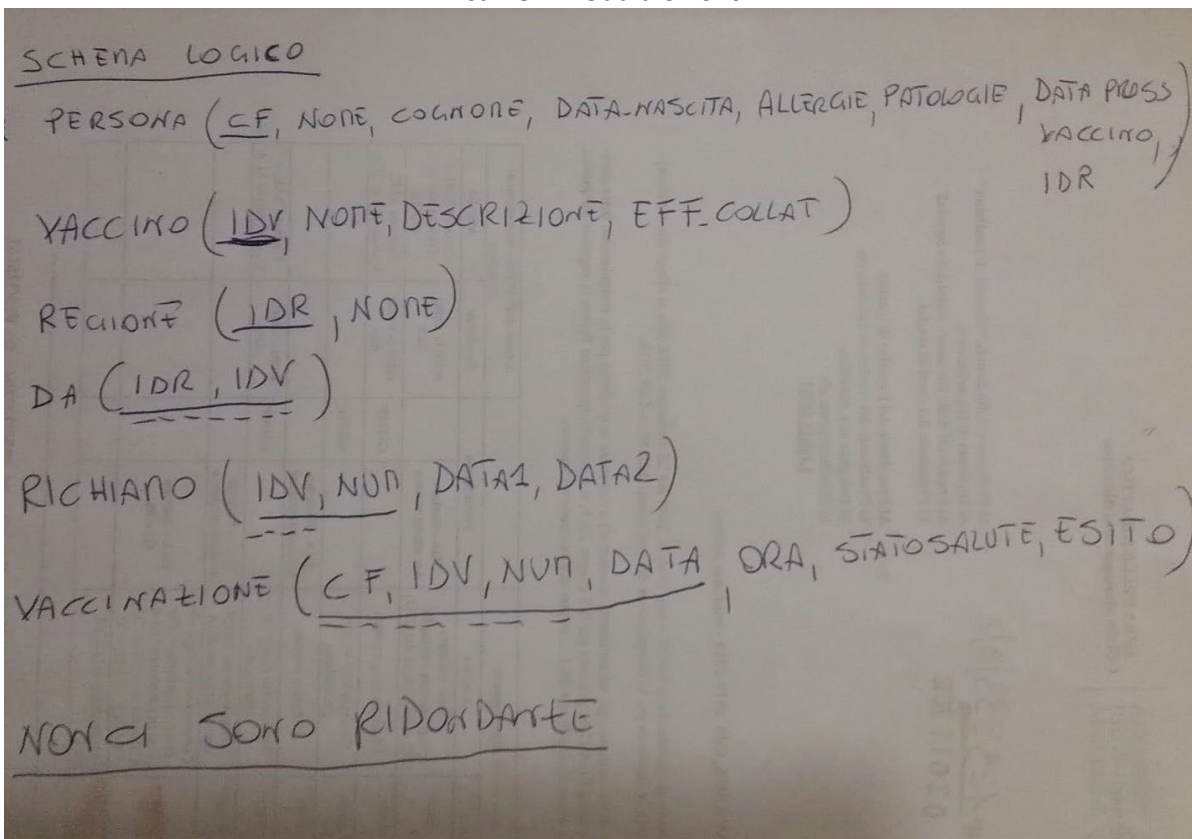 SCHEMA LOGICO
PERSONA (CF, NOME, COGNOME, DATA_NASCITA, ALLERGIE, PATOLOGIE, DATA PROSS
VACCINO,
IDR)
VACCINO (IDV, NOME, DESCRIZIONE, EFF_COLLAT)
REGIONE (IDR, NOME)
DA (IDR, IDV)
RICHIAMO (IDV, NUM, DATA1, DATA2)
VACCINAZIONE (CF, IDV, NUM, DATA, ORA, STATOSALUTE, ESITO)
NON CI SONO RIDONDANZE